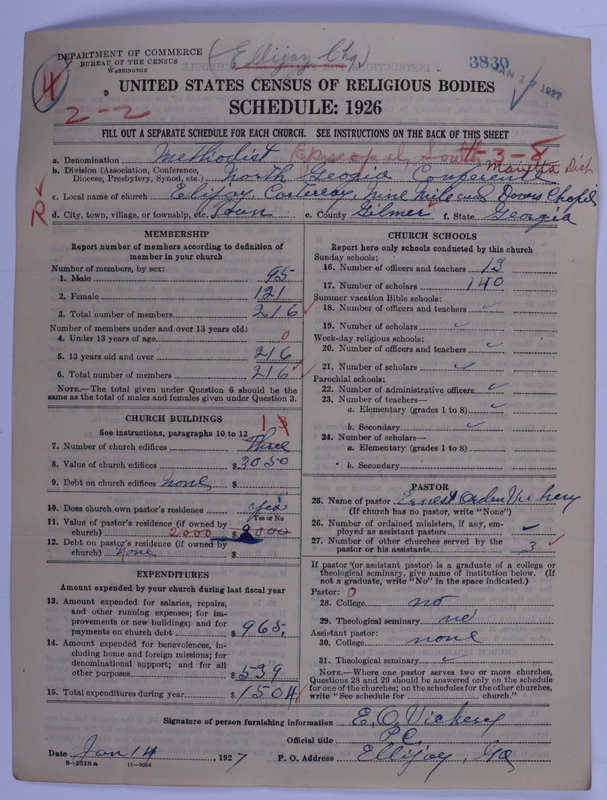 DEPARTMENT OF COMMERCE (Ellijay Chg.)
BUREAU OF THE CENSUS 3830
WASHINGTON JAN 17 1927
4
2-2
UNITED STATES CENSUS OF RELIGIOUS BODIES
SCHEDULE: 1926
FILL OUT A SEPARATE SCHEDULE FOR EACH CHURCH. SEE INSTRUCTIONS ON THE BACK OF THIS SHEET
a. Denomination Methodist Episcopal, South 3-8
b. Division (Association, Conference, Diocese, Presbytery, Synod, etc.) North Georgia Conference Marietta Dist
c. Local name of church Ellijay, Nine Mile and Chapel
d. City, town, village, or township, etc. Town e. County Gilmer f. State Georgia
R
MEMBERSHIP
Report number of members according to definition of
member in your church
Number of members, by sex:
1. Male 95
2. Female 121
3. Total number of members 216
Number of members under and over 13 years old:
4. Under 13 years of age 0
5. 13 years old and over 216
6. Total number of members 216
NOTE.—The total given under Question 6 should be
same as the total of males and females given under Question 3.
CHURCH BUILDINGS
See instructions, paragraphs 10 to 12 1 3
7. Number of church edifices Three
8. Value of church edifices $ 3050
9. Debt on church edifices none $
10. Does church own pastor's residence yes
Yes or No
11. Value of pastor's residence (if owned by
church) 2000 $ 2000
12. Debt on pastor's residence (if owned by
church) none $
EXPENDITURES
Amount expended by your church during last fiscal year
13. Amount expended for salaries, repairs,
and other running expenses; for im-
provements or new buildings; and for
payments on church debt $ 965.
14. Amount expended for benevolences, in-
cluding home and foreign missions; for
denominational support; and for all
other purposes $ 539
15. Total expenditures during year $ 1504
CHURCH SCHOOLS
Report here only schools conducted by this church
Sunday schools:
16. Number of officers and teachers 13
17. Number of scholars 140
Summer vacation Bible schools:
18. Number of officers and teachers
19. Number of scholars
Week-day religious schools:
20. Number of officers and teachers
21. Number of scholars
Parochial schools:
22. Number of administrative officers
23. Number of teachers—
a. Elementary (grades 1 to 8)
b. Secondary
24. Number of scholars—
a. Elementary (grades 1 to 8)
b. Secondary
PASTOR
25. Name of pastor Ernest Orden Vickery
(If church has no pastor, write "None")
26. Number of ordained ministers, if any, em-
ployed as assistant pastors
27. Number of other churches served by the
pastor or his assistants 3
If pastor (or assistant pastor) is a graduate of a college or
theological seminary, give name of institution below. (If
not a graduate, write "No" in the space indicated.)
Pastor: 0
28. College no
29. Theological seminary no
Assistant pastor:
30. College none
31. Theological seminary
NOTE.—Where one pastor serves two or more churches,
Questions 28 and 29 should be answered only on the schedule
for one of the churches; on the schedules for the other churches,
write "See schedule for church."
Signature of person furnishing information E. O. Vickery
Official title P.C.
Date Jan 14, 1927 P. O. Address Ellijay, Ga
8-5518a 11-9054